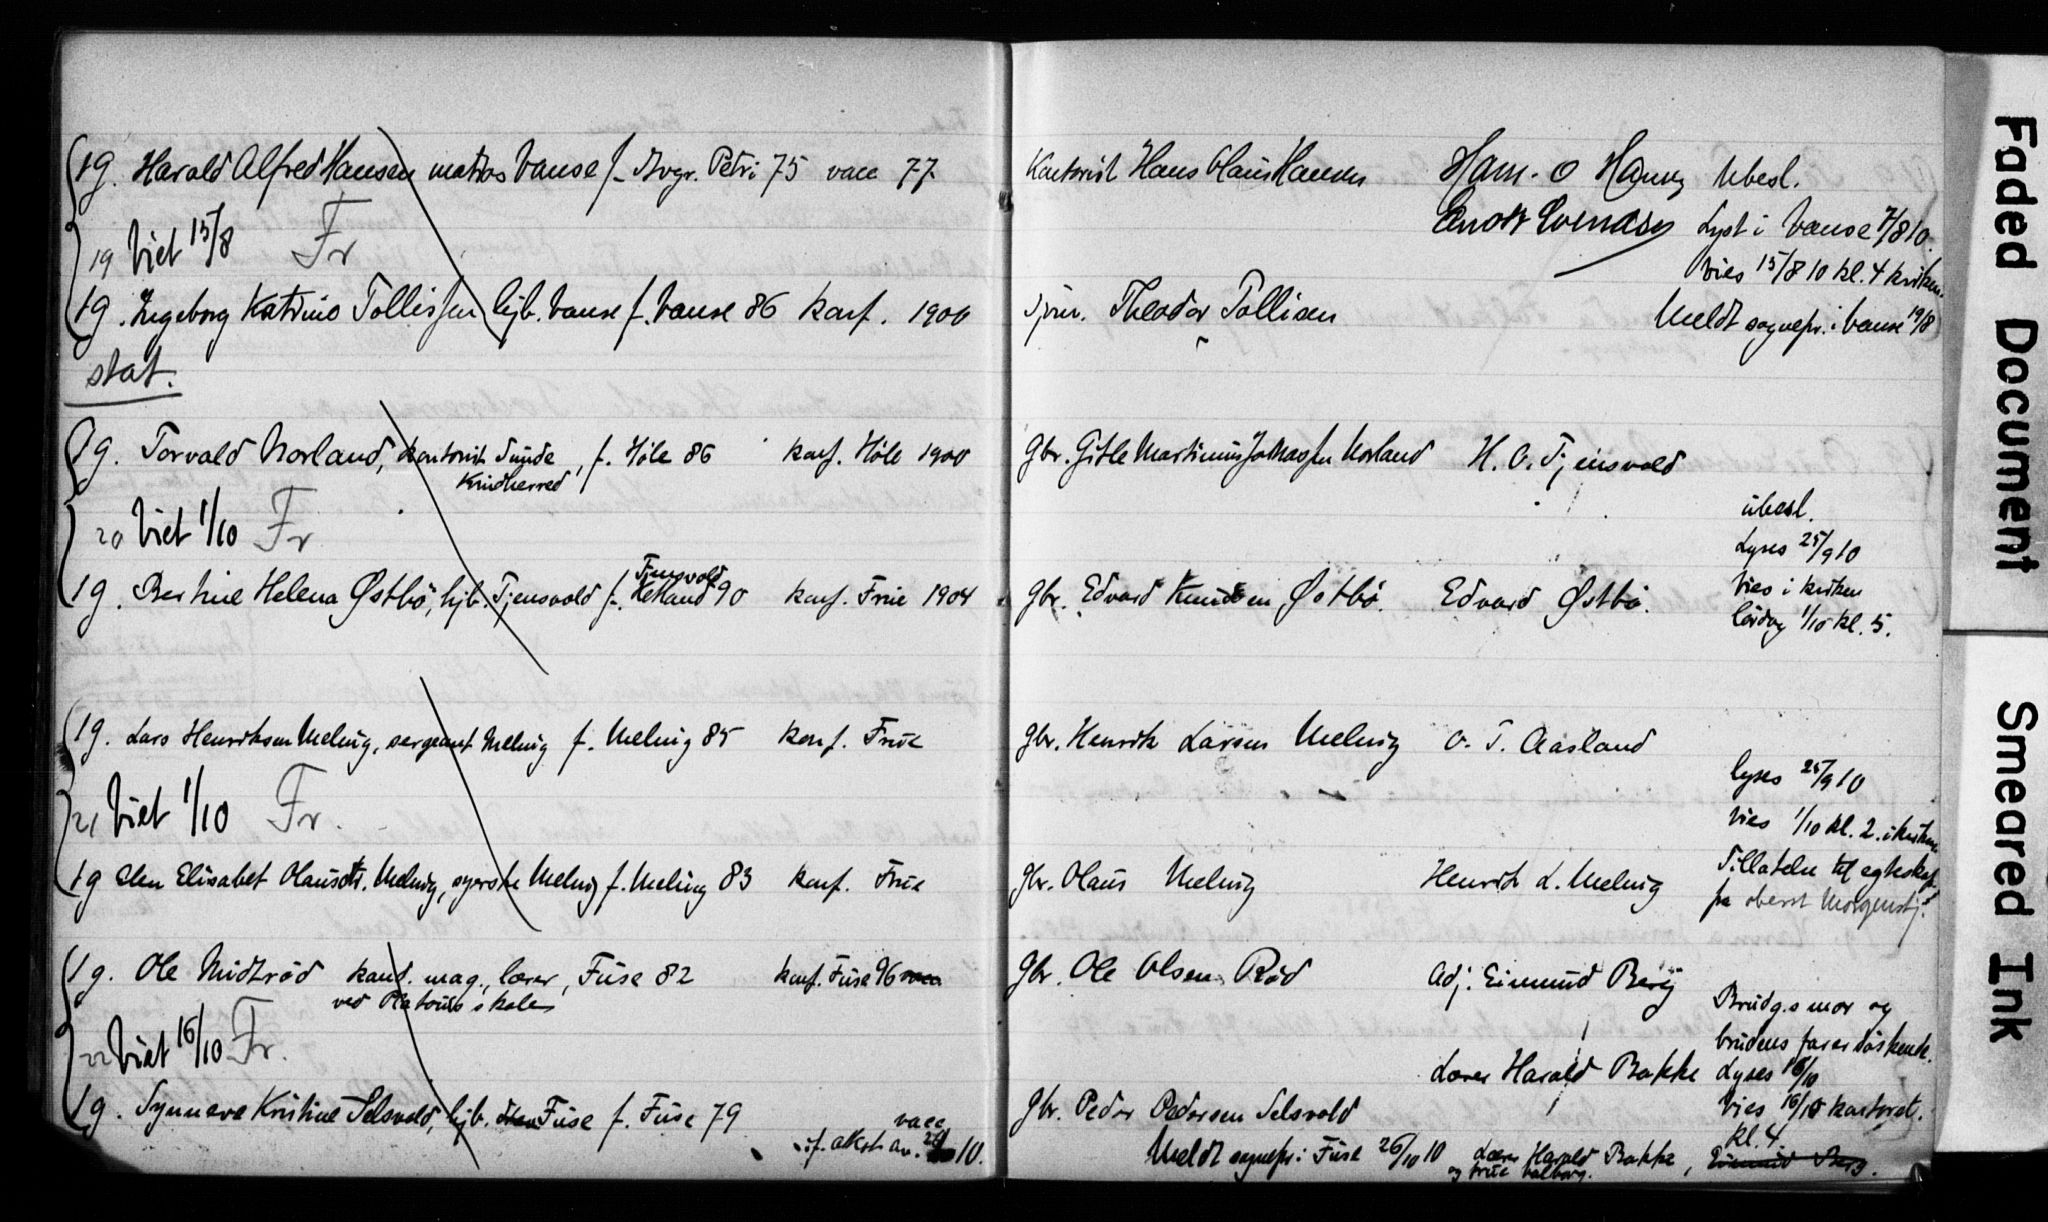 1g. Harald Alfred Hansen matros Vanse f. Stvgr. Petri 75 vacc 77.
Kontorist Hans Olaus Hansen
Ubesl.
19 Viet 15/8 Fr
Lyst i Vanse 7/8 10.
Vies 15/8 10 kl. 4 kirken.
1g. Ingeborg Katrine Tollisen hjv. Vanse f. Vanse 86 konf. 1900
Theodor Tollisen
Meldt sognepr. i Vanse 19/8
stat.
1g. Torvald Norland, kontorist Sunde, f. Höle 86 konf. Höle 1900
Kvidherred
gbr. Gitle Martinius Norland
H. O. Tjensvold
ubesl.
20 Viet 1/10 Fr
Lyses 25/9 10
1g. Bertine Helena Østbö, hjv. Tjensvold f. Ketland 90 konf. Frue 1904
Tjensvold
gbr. Edvard Knudsen Østbö.
Edvard Østbö.
Vies i kirken
lördag 1/10 kl. 5.
1g. Lars Henriksen Meling, sergeant Meling f. Meling 85 konf. Frue
gbr. Henrik Larsen Meling
O. T. Aasland
21 Viet 1/10 Fr.
lyses 25/9 10
Vies 1/10 kl. 2. i kirken
1g Elen Elisabet Olausdtr. Meling, syerske Meling f. Meling 83 konf. Frue
gbr. Olaus Meling
Henrik L. Meling
Tillatelse til egteskap
fra oberst Morgenstj.
1g. Ole Midtröd kand. mag., lærer, Fuse 82 konf. Fuse 96 vacc
ved skole
gbr. Ole Olsen Röd
Adj. Eimund Berg
Brudg.s mor og
brudens far er söskende.
22 Viet 16/10 Fr.
Lærer Harald Bakke
Lyses 16/10
1g. Synneve Kristine Selsvold, hjv. Fuse f. Fuse 79
vacc
if. attest av. 10.
gbr. Peder Pedersen Selsvold
Vies 16/10 kontoret.
kl. 4.
Meldt sognepr. i Fuse 26/10 10
Lærer Harald Bakke, Eimund Berg.
og frue Valborg.
Faded Document
Smeared Ink